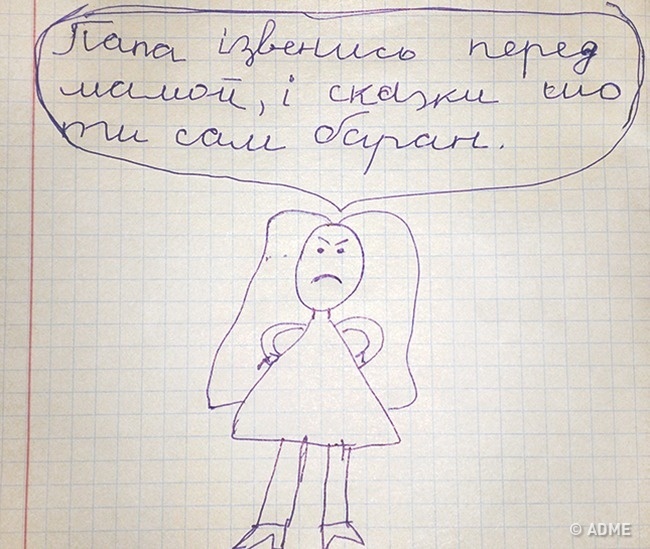 Папа ізвенись перед
мамой, і сказки шо
ти сам баран.
© ADME